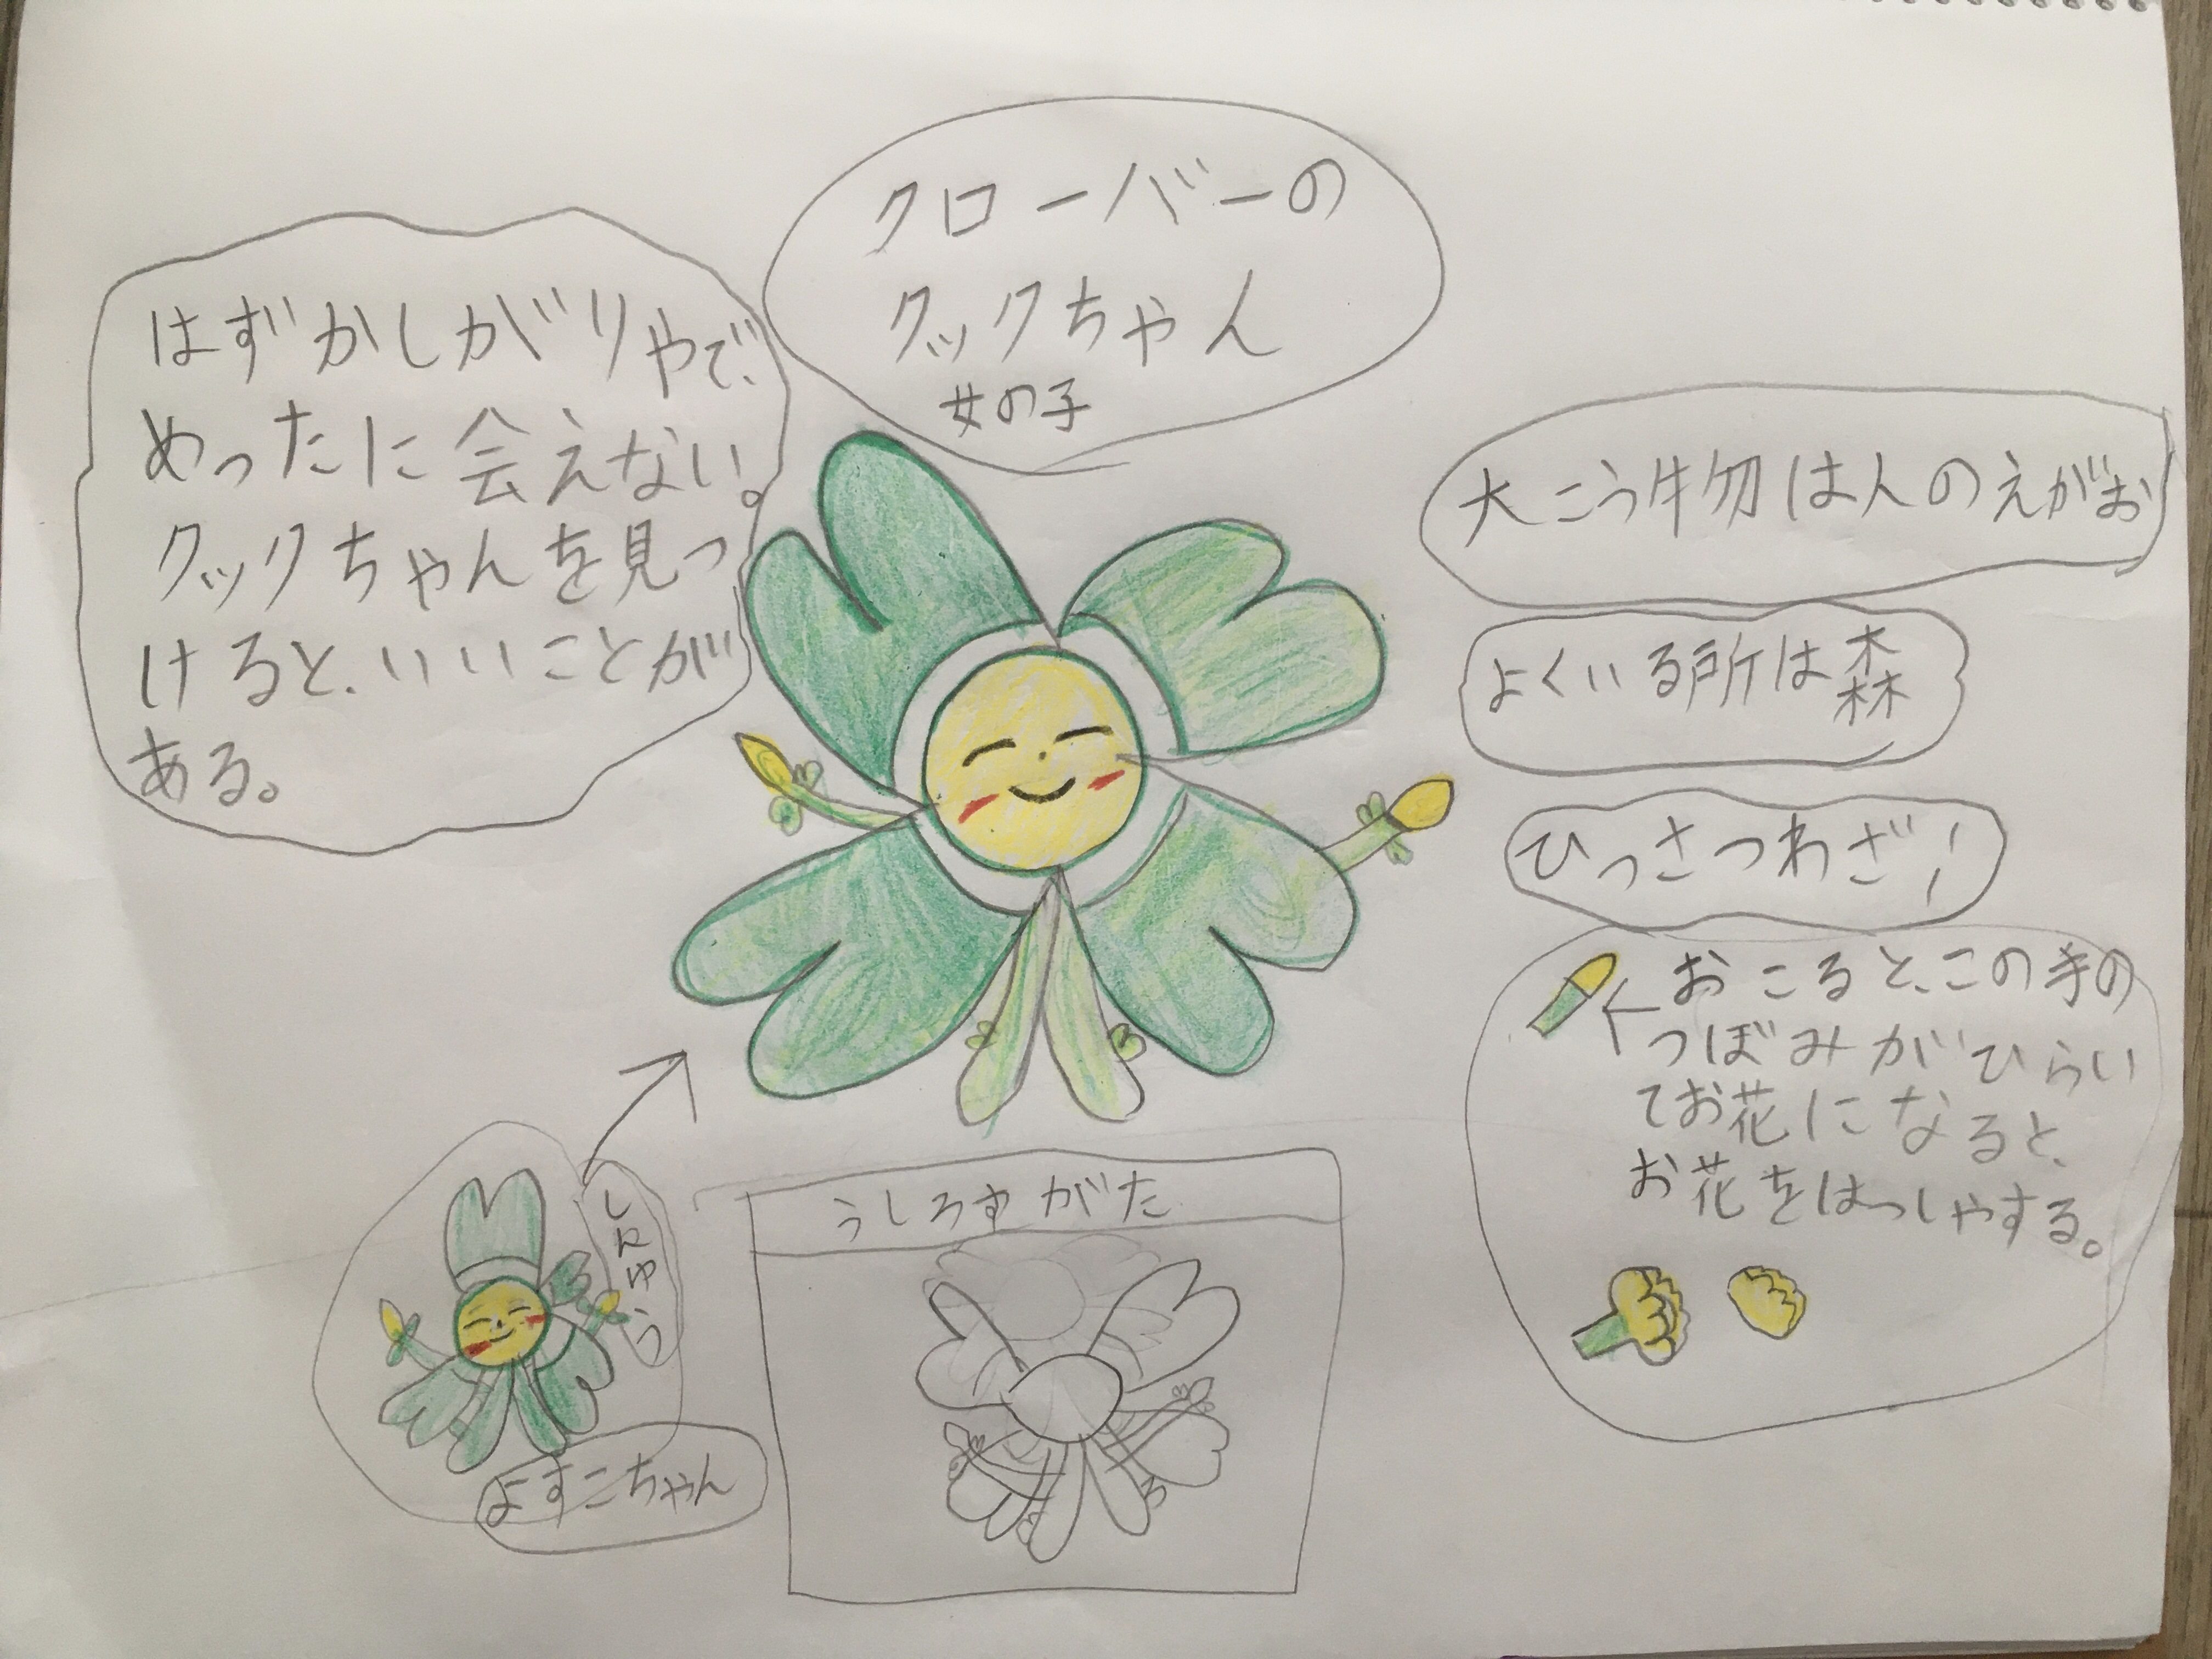 クローバーの
クックちゃん
女の子
はずかしがりやで、
めったに会えない。
クックちゃんを見つ
けると、いいことが
ある。
大こう物は人のえがお
よくいる所は森
ひっさつわざ!
←おこると、この手の
つぼみがひらい
てお花になると、
お花をはっしゃする。
しんゆう
よすこちゃん
うしろすがた